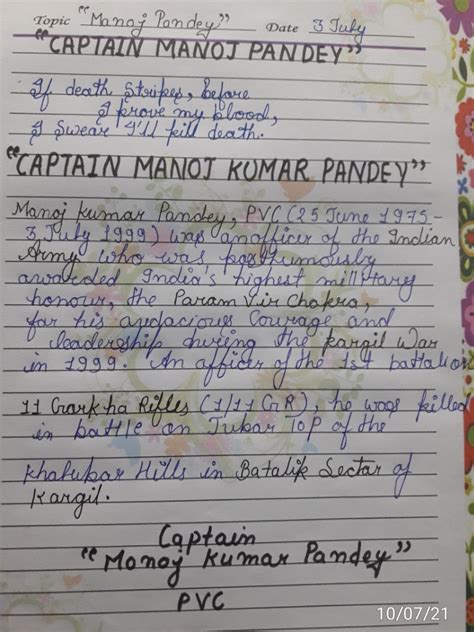 Topic "Manoj Pandey" Date 3 July
"CAPTAIN MANOJ PANDEY"
If death stripes, before
I prove my blood,
I swear I'll kill death.
"CAPTAIN MANOJ KUMAR PANDEY"
Manoj kumar Pandey, PVC (25 June 1975-
3 July 1999) was an officer of the Indian
Army who was posthumously
awarded India's highest millitary
honour, the Param Vir Chakra,
for his audacious Courage and
leadership during the kargil War
in 1999. An officer of the 1st battalion
11 Gorkha Rifles (1/11 GR), he was killed
in battle on Jubar Top of the
khalubar Hills in Batalik Sector of
Kargil.
Captain
"Manoj Kumar Pandey"
PVC
10/07/21